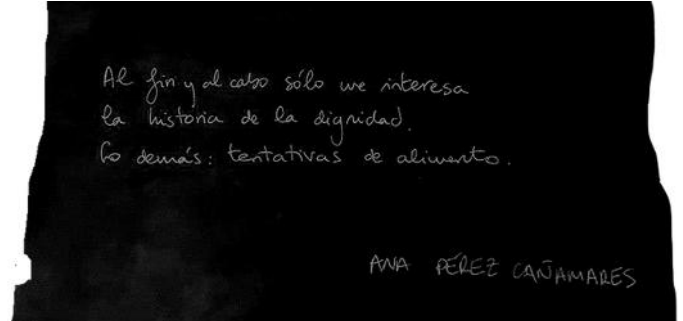 Al fin y al cabo sólo me interesa
la historia de la dignidad.
Lo demás: tentativas de alimento.
ANA PÉREZ CAÑAMARES